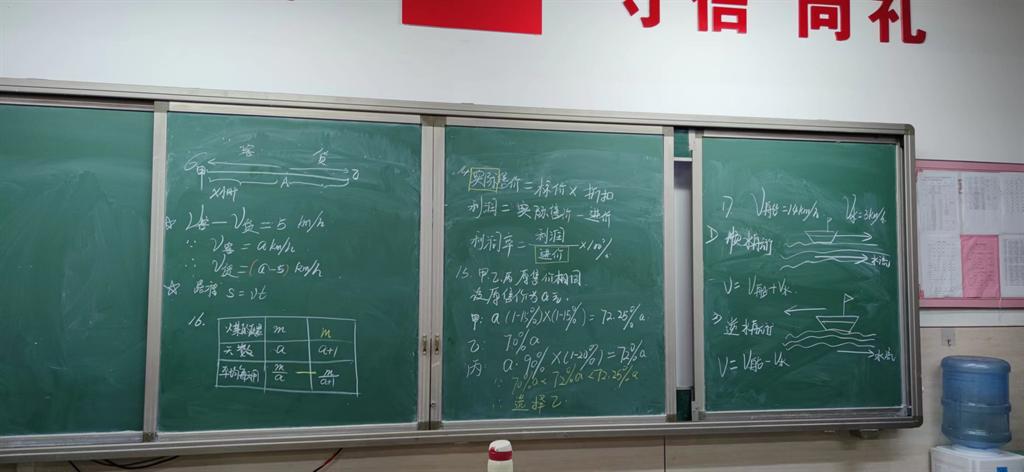 守信 尚礼
客 货
甲 A 乙
x小时
☆ V客-V货=5 km/h
∵ V客=a km/h
∴ V货=(a-5) km/h
☆ 路程 s=vt
16.
m m
天数 a a+1
m/a — m/(a+1)
14. 实际售价=标价×折扣
利润=实际售价-进价
利润率=利润/进价×100%
15. 甲乙丙原售价相同
设原售价为a元.
甲: a(1-15%)×(1-15%)=72.25%a
乙: 70%a
丙 a·90%×(1-20%)=72%a
∵ 70%a<72%a<72.25%a
∴ 选择乙.
17 V船=14km/h V水=3km/h
1) 顺水
水流
V=V船+V水
2) 逆水
水流
V=V船-V水